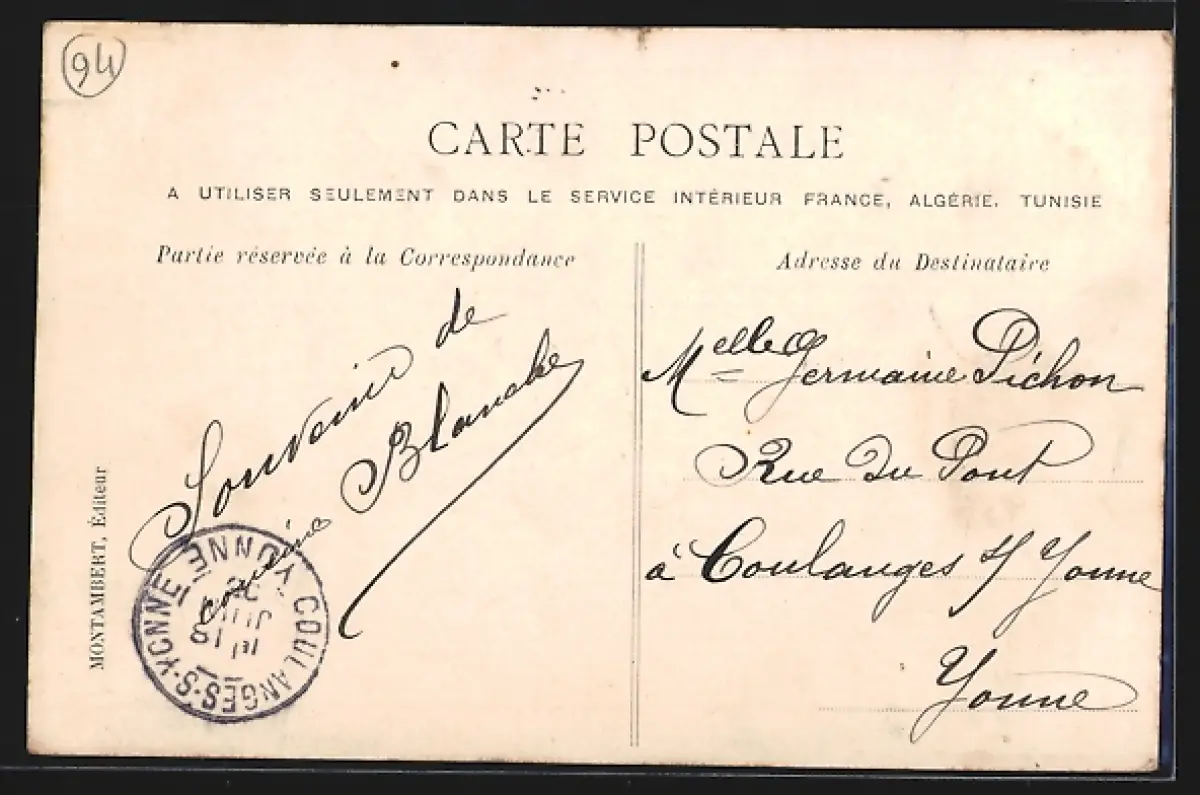 94
CARTE POSTALE
A UTILISER SEULEMENT DANS LE SERVICE INTÉRIEUR FRANCE, ALGÉRIE, TUNISIE
Partie réservée à la Correspondance
Souvenir de
cousine Blanche
MONTAMBERT, Éditeur
COULANGES-S-YONNE
YONNE
Adresse du Destinataire
Melle Germaine Pichon
Rue du Pont
à Coulanges s/ Yonne
Yonne